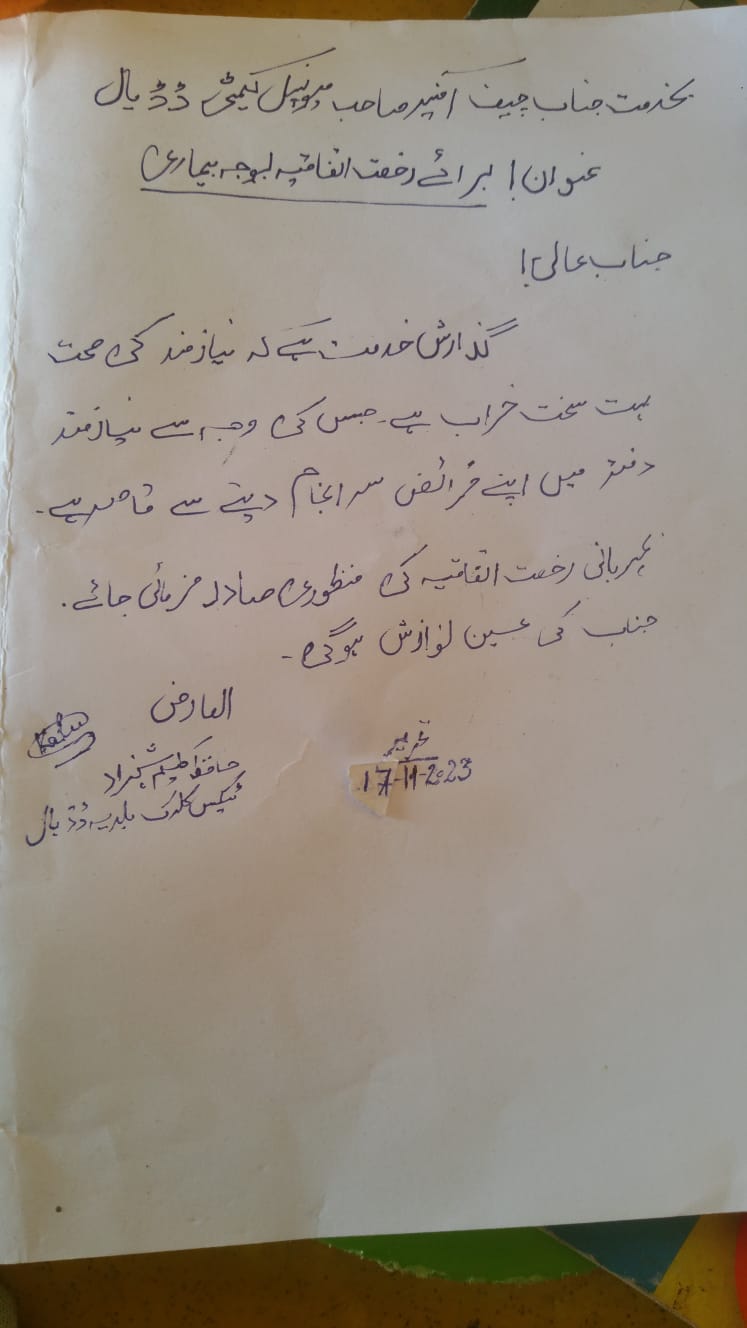 بخدمت جناب چیف آفیسر صاحب میونسپل کمیٹی ڈڈیال
عنوان! برائے رخصت اتفاقیہ بوجہ بیماری
جناب عالی!
گذارش خدمت ہے کہ نیازمند کی صحت
بہت سخت خراب ہے۔ جس کی وجہ سے نیازمند
دفتر میں اپنے فرائض سرانجام دینے سے قاصر ہے۔
مہربانی رخصت اتفاقیہ کی منظوری صادر فرمائی جائے۔
جناب کی عین نوازش ہوگی۔
العارض
حافظ شہزاد
ٹیکس کلرک بلدیہ ڈڈیال
تحریر
17-11-2023